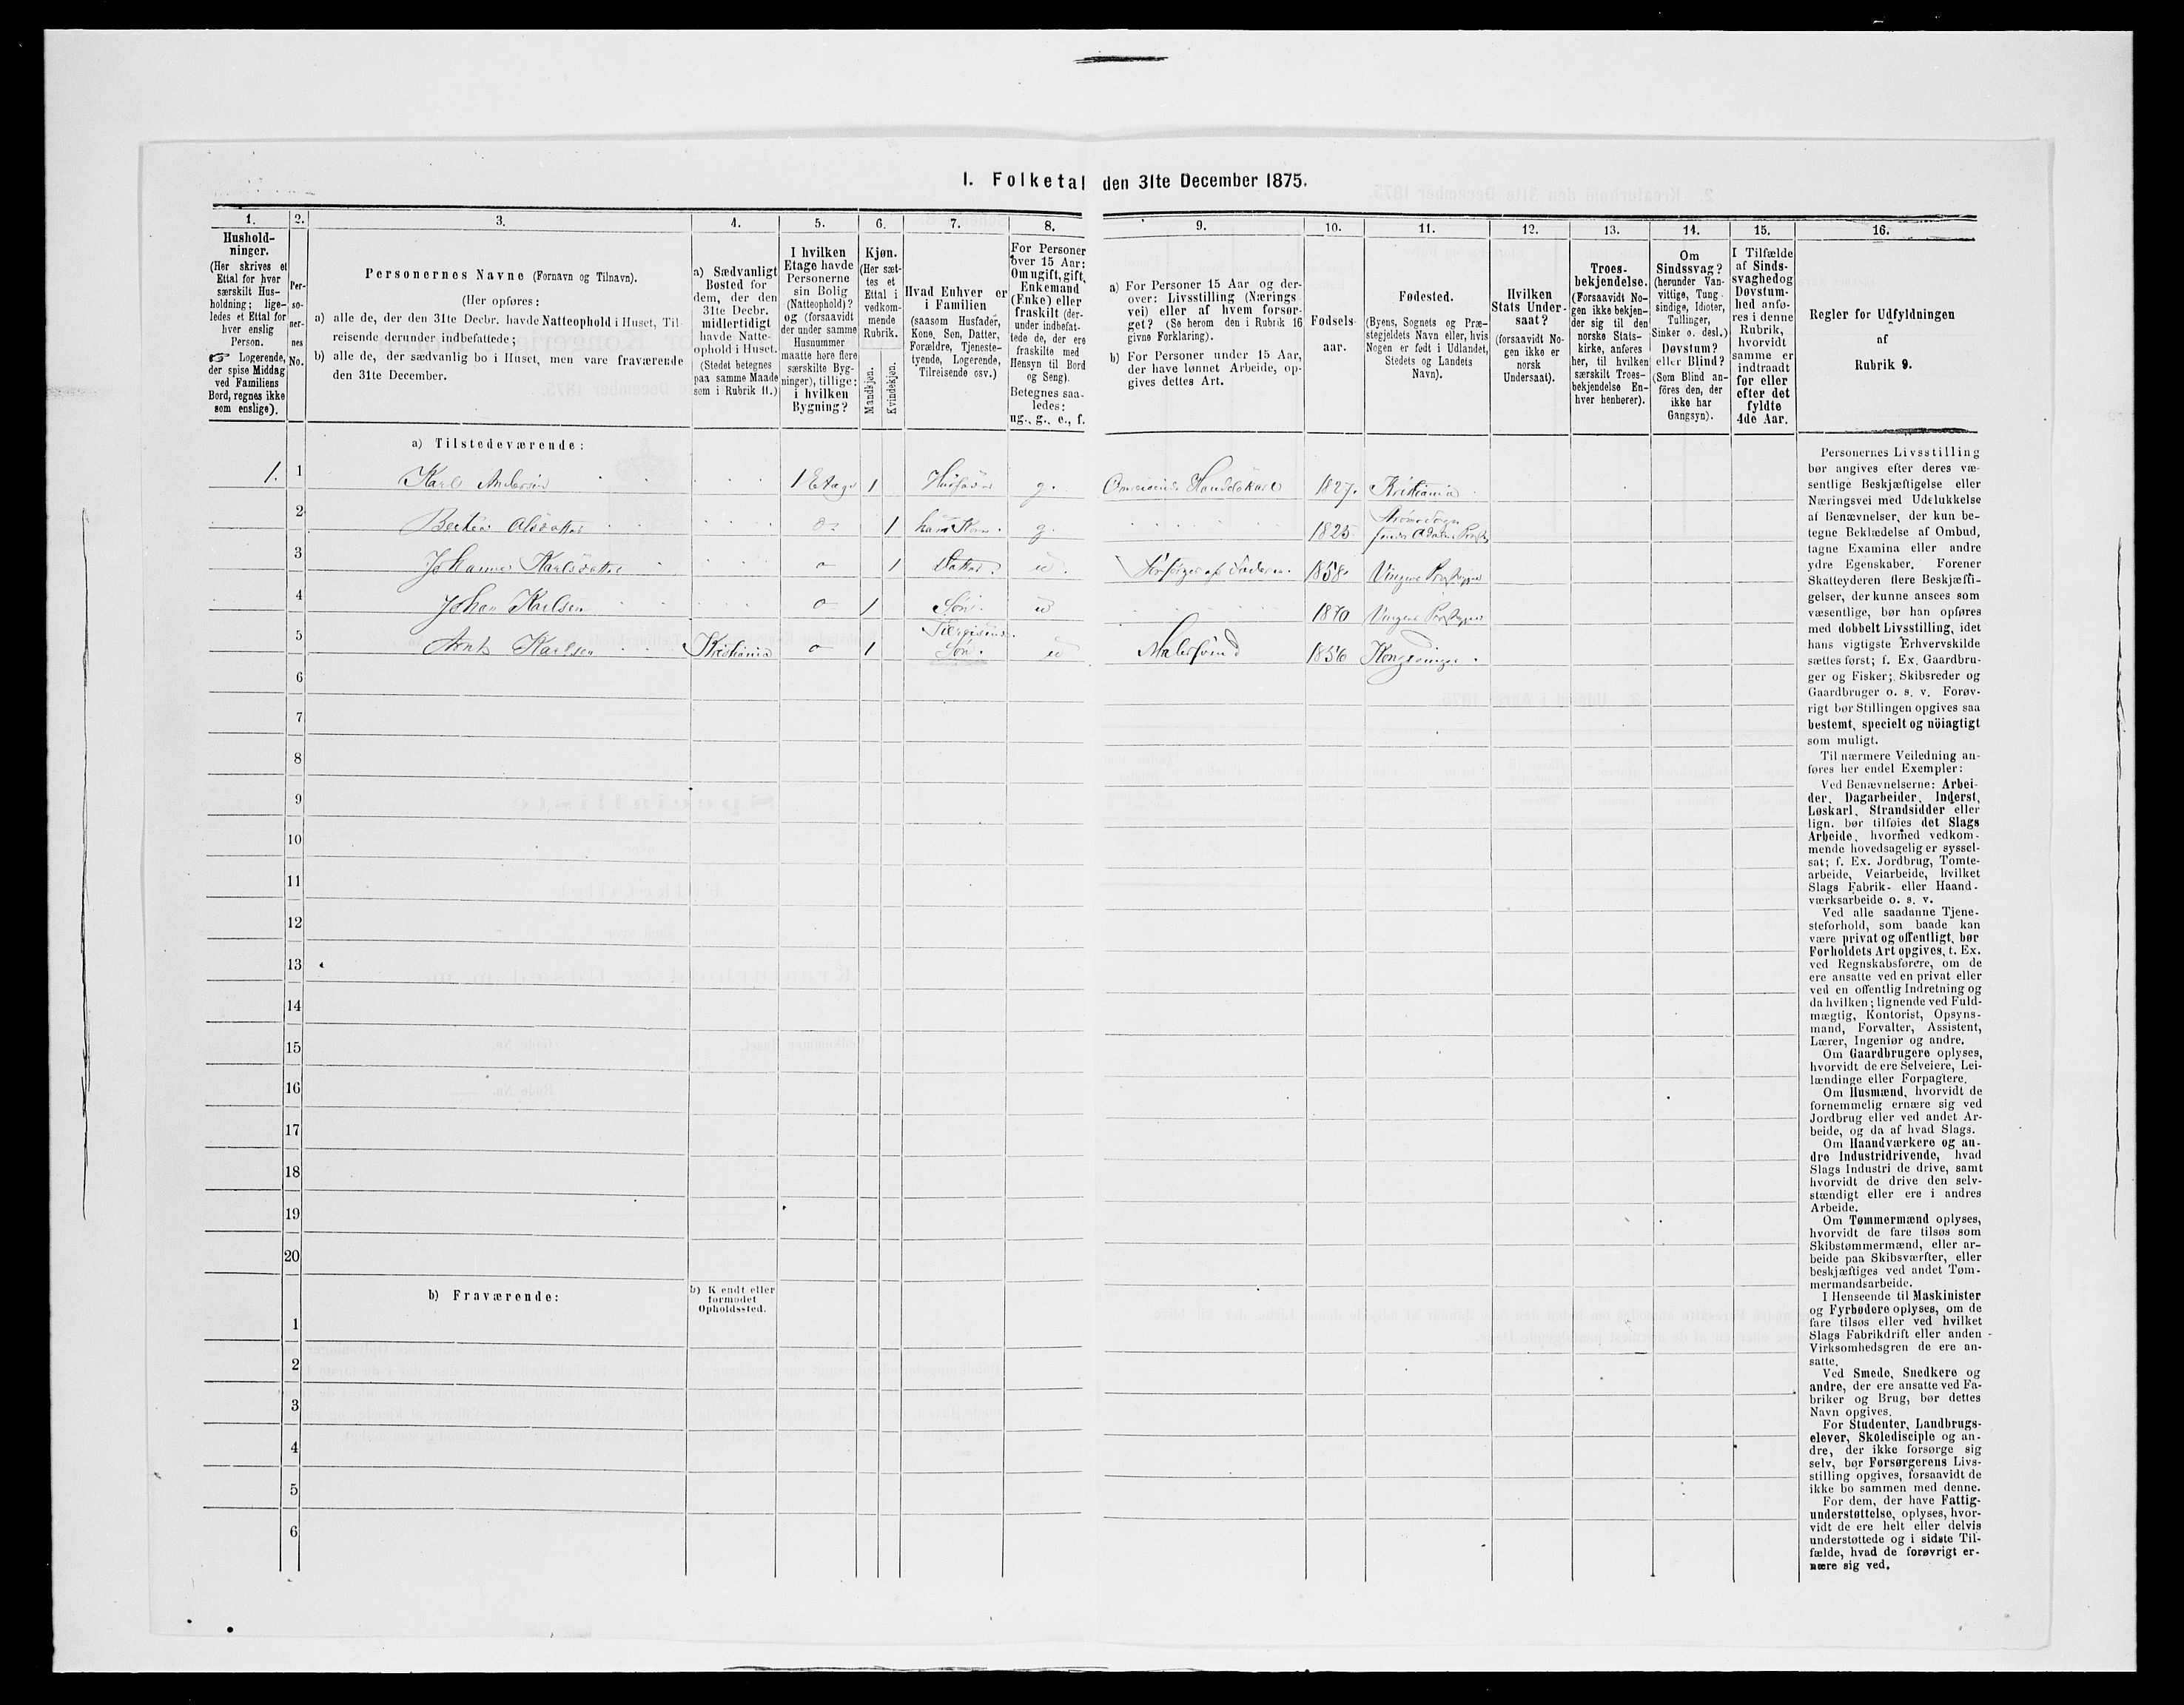 I. Folketal den 31te December 1875.
1.
Hushold-
ninger.
(Her skrives et
Ettal for hver
særskilt Hus-
holdning; lige-
ledes et Ettal for
hver enslig
Person.
☞ Logerende,
der spise Middag
ved Familiens
Bord, regnes ikke
som enslige).
2.
Per-
so-
ner-
nes
No.
3.
Personernes Navne (Fornavn og Tilnavn).
(Her opføres:
a) alle de, der den 31te Decbr. havde Natteophold i Huset, Til-
reisende derunder indbefattede;
b) alle de, der sædvanlig bo i Huset, men vare fraværende
den 31te December.
4.
a) Sædvanligt
Bosted for
dem, der den
31te Decbr.
midlertidigt
havde Natte-
ophold i Huset.
(Stedet betegnes
paa samme Maade
som i Rubrik 11.)
5.
I hvilken
Etage havde
Personerne
sin Bolig
(Natteophold)?
og (forsaavidt
der under samme
Husnummer
maatte høre flere
særskilte Byg-
ninger), tillige:
i hvilken
Bygning?
6.
Kjøn.
(Her sæt-
tes et
Ettal i
vedkom-
mende
Rubrik.
Mandkjøn.
Kvindekjøn.
7.
Hvad Enhver er
i Familien
(saasom Husfader,
Kone, Søn, Datter,
Forældre, Tjeneste-
tyende, Logerende,
Tilreisende osv.)
8.
For Personer
over 15 Aar:
Om ugift, gift,
Enkemand
(Enke) eller
fraskilt (der-
under indbefat-
tede de, der ere
fraskilte med
Hensyn til Bord
og Seng).
Betegnes saa-
ledes:
ug., g., e., f.
9.
a) For Personer 15 Aar og der-
over: Livsstilling (Nærings-
vei) eller af hvem forsør-
get? (Se herom den i Rubrik 16
givne Forklaring).
b) For Personer under 15 Aar,
der have lønnet Arbeide, op-
gives dettes Art.
10.
Fødsels-
aar.
11.
Fødested.
(Byens, Sognets og Præ-
stegjeldets Navn eller, hvis
Nogen er født i Udlandet,
Stedets og Landets
Navn).
12.
Hvilken
Stats Under-
saat?
(forsaavidt No-
gen ikke er
norsk
Undersaat).
13.
Troes-
bekjendelse.
(Forsaavidt No-
gen ikke bekjen-
der sig til den
norske Stats-
kirke, anføres
her, til hvilken
særskilt Troes-
bekjendelse En-
hver henhører).
14.
Om
Sindssvag?
(herunder Van-
vittige, Tung-
sindige, Idioter,
Tullinger,
Sinker o. desl.)
Døvstum?
eller Blind?
(Som Blind an-
føres den, der
ikke har
Gangsyn).
15.
I Tilfælde
af Sinds-
svaghed og
Døvstum-
hed anfø-
res i denne
Rubrik,
hvorvidt
samme er
indtraadt
før eller
efter det
fyldte
4de Aar.
16.
Regler for Udfyldningen
af
Rubrik 9.
a) Tilstedeværende:
1. 1 Karl Andersen 1 Etage 1 Husfader g. Handelskarl 1827. Kristiania
2 Olsdatter 1 hans Kone g. 1825
3 Karlsdatter 1 Datter u. Forsørges af Faderen. 1858
4 Johan Karlsen 1 Søn. u 1870
5 Karlsen Kristiania 1 Søn. u Malersvend 1856
6
7
8
9
10
11
12
13
14
15
16
17
18
19
20
b) Fraværende:
b) Kendt eller
formodet
Opholdssted.
1
2
3
4
5
6
Personernes Livsstilling
bør angives efter deres væ-
sentlige Beskjæftigelse eller
Næringsvei med Udelukkelse
af Benævnelser, der kun be-
tegne Beklædelse af Ombud,
tagne Examina eller andre
ydre Egenskaber. Forener
Skatteyderen flere Beskjæfti-
gelser, der kunne ansees som
væsentlige, bør han opføres
med dobbelt Livsstilling, idet
hans vigtigste Erhvervskilde
sættes først; f. Ex. Gaardbru-
ger og Fisker; Skibsreder og
Gaardbruger o. s. v. Forøv-
rigt bør Stillingen opgives saa
bestemt, specielt og nöiagtigt
som muligt.
Til nærmere Veiledning an-
føres her endel Exempler:
Ved Benævnelserne: Arbei-
der, Dagarbeider, Inderst,
Løskarl, Strandsidder eller
lign. bør tilføies det Slags
Arbeide, hvormed vedkom-
mende hovedsagelig er syssel-
sat; f. Ex. Jordbrug, Tomte-
arbeide, Veiarbeide, hvilket
Slags Fabrik- eller Haand-
værksarbeide o. s. v.
Ved alle saadanne Tjene-
steforhold, som baade kan
være privat og offentligt, bør
Forholdets Art opgives, t. Ex.
ved Regnskabsførere, om de
ere ansatte ved en privat eller
ved en offentlig Indretning og
da hvilken; lignende ved Fuld-
mægtig, Kontorist, Opsyns-
mand, Forvalter, Assistent,
Lærer, Ingeniør og andre.
Om Gaardbrugere oplyses,
hvorvidt de ere Selveiere, Lei-
lændinge eller Forpagtere.
Om Husmænd, hvorvidt de
fornemmelig ernære sig ved
Jordbrug eller ved andet Ar-
beide, og da af hvad Slags.
Om Haandværkere og an-
dre Industridrivende, hvad
Slags Industri de drive, samt
hvorvidt de drive den selv-
stændigt eller ere i andres
Arbeide.
Om Tømmermænd oplyses,
hvorvidt de fare tilsøs som
Skibstømmermænd, eller ar-
beide paa Skibsværfter, eller
beskjæftiges ved andet Tøm-
mermandsarbeide.
I Henseende til Maskinister
og Fyrbødere oplyses, om de
fare tilsøs eller ved hvilket
Slags Fabrikdrift eller anden
Virksomhedsgren de ere an-
satte.
Ved Smede, Snedkere og
andre, der ere ansatte ved Fa-
briker og Brug, bør dettes
Navn opgives.
For Studenter, Landbrugs-
elever, Skoledisciple og an-
dre, der ikke forsørge sig
selv, bør Forsørgerens Livs-
stilling opgives, forsaavidt de
ikke bo sammen med denne.
For dem, der have Fattig-
understøttelse, oplyses, hvor-
vidt de ere helt eller delvis
understøttede og i sidste Til-
fælde, hvad de forøvrigt er-
nære sig ved.